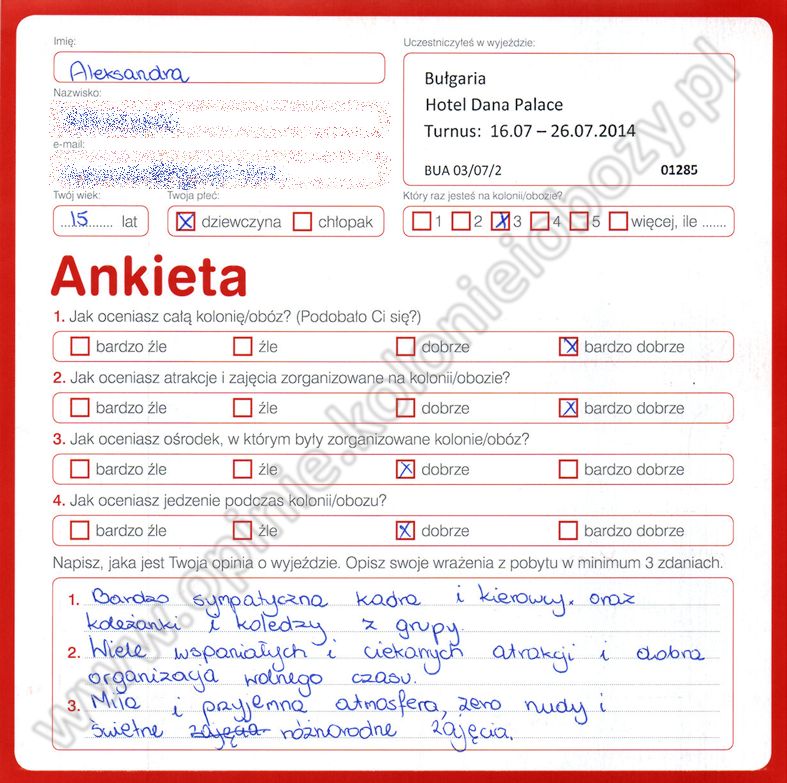 Imię:
Aleksandra
Uczestniczyłeś w wyjeździe:
Bułgaria
Hotel Dana Palace
Turnus: 16.07 – 26.07.2014
BUA 03/07/2 01285
Nazwisko:
e-mail:
Twój wiek:
...15....... lat
Twoja płeć:
dziewczyna chłopak
Który raz jesteś na kolonii/obozie?
1 2 3 4 5 więcej, ile .......
Ankieta
1. Jak oceniasz całą kolonię/obóz? (Podobało Ci się?)
bardzo źle źle dobrze bardzo dobrze
2. Jak oceniasz atrakcje i zajęcia zorganizowane na kolonii/obozie?
bardzo źle źle dobrze bardzo dobrze
3. Jak oceniasz ośrodek, w którym były zorganizowane kolonie/obóz?
bardzo źle źle dobrze bardzo dobrze
4. Jak oceniasz jedzenie podczas kolonii/obozu?
bardzo źle źle dobrze bardzo dobrze
Napisz, jaka jest Twoja opinia o wyjeździe. Opisz swoje wrażenia z pobytu w minimum 3 zdaniach.
1. Bardzo sympatyczna kadra i kierowcy. oraz
koleżanki i koledzy z grupy.
2. Wiele wspaniałych i ciekawych atrakcji i dobra
organizacja wolnego czasu.
3. Miła i przyjemna atmosfera, zero nudy i
świetne zajęcia różnorodne zajęcia.
www.opinie.kolonieiobozy.pl